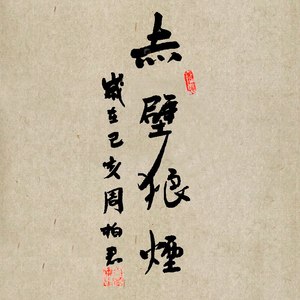 赤壁狼煙
歲在己亥周柏君